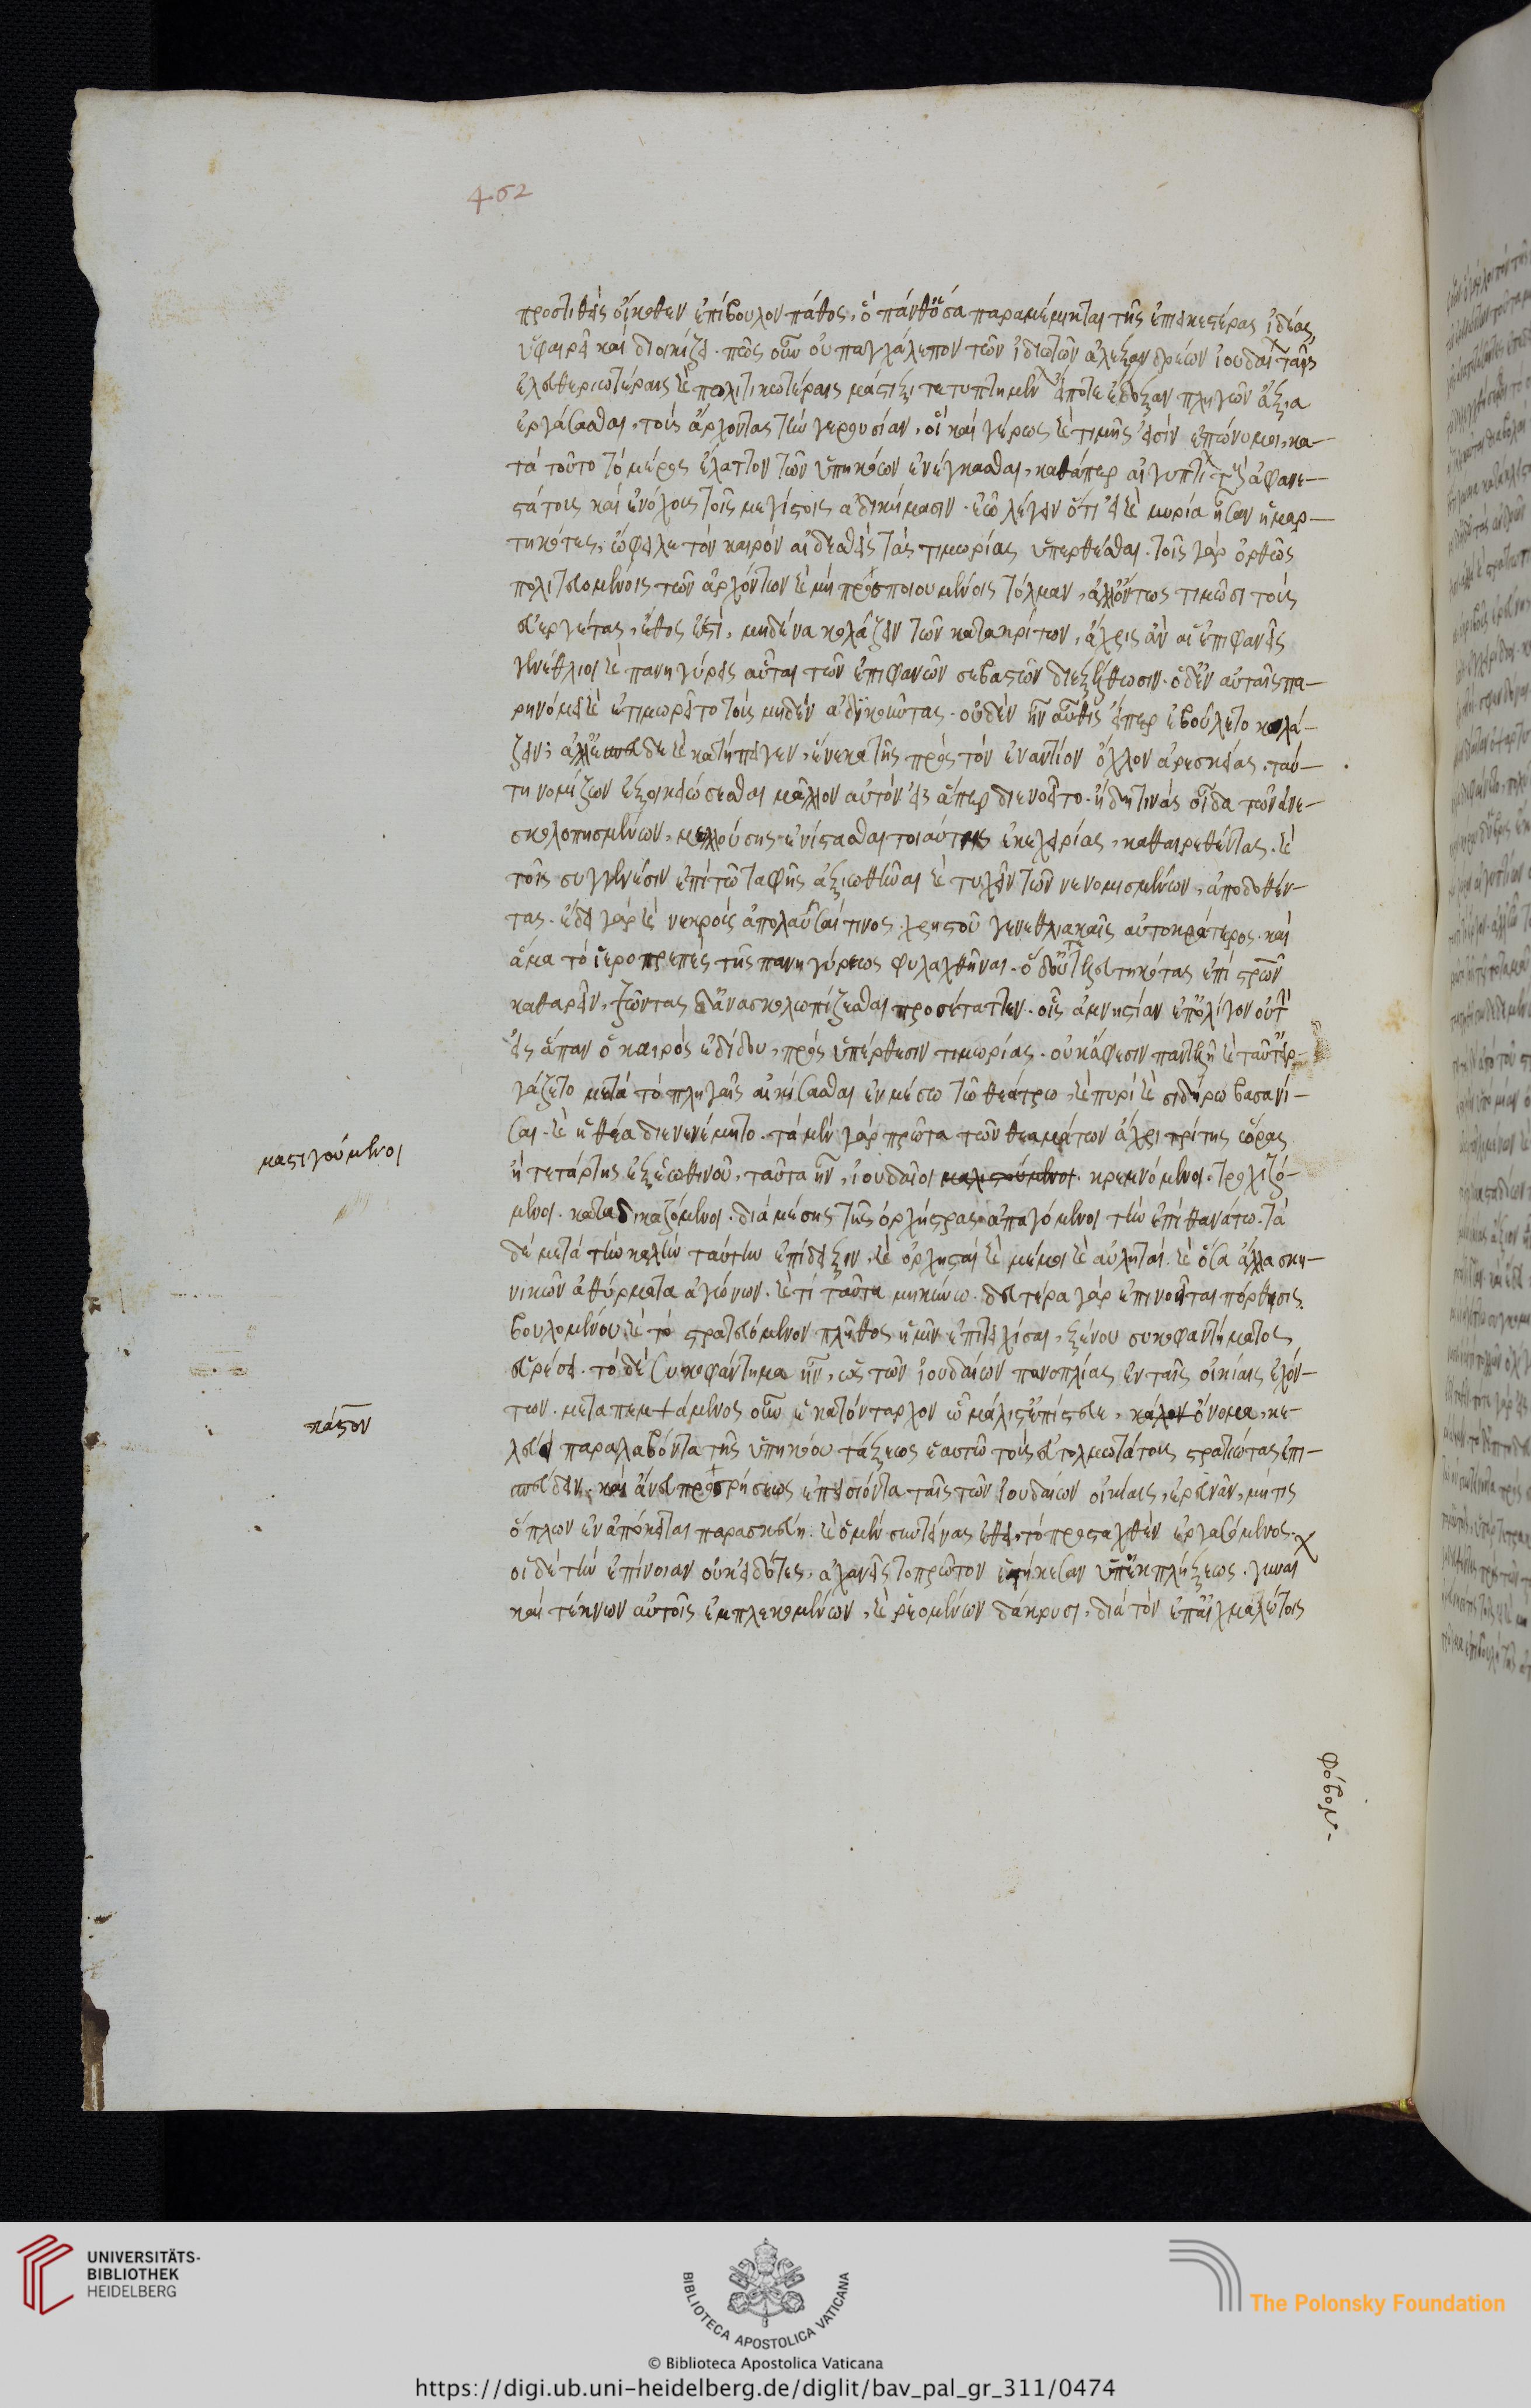 462
προστιθεὶς οἴκοθεν ἐπίβουλον πάθος, ὃ πάνθ' ὅσα παραμέμικται τῆς ἐπιεικεστέρας ἰδέας
ὑφαιρεῖ καὶ διοικίζει. πῶς οὖν οὐ παγχάλεπον τῶν ἰδιωτῶν ἀλεξανδρέων ἰουδαίων ταῖς
ἐλευθεριωτέραις καὶ πολιτικωτέραις μάστιξι τετυπτημένων εἴποτε ἔδοξαν πληγῶν ἄξια
ἐργάσασθαι, τοὺς ἄρχοντας τὴν γερουσίαν, οἳ καὶ γέρως καὶ τιμῆς εἰσὶν ἐπώνυμοι, κα-
τὰ τοῦτο τὸ μέρος ἔλαττον τῶν ὑπηκόων ἐνέγκασθαι, καθάπερ αἰγυπτίων τοὺς ἀφανε-
στάτους καὶ ἐνόχους τοῖς μεγίστοις ἀδικήμασιν. ἐῶ λέγειν ὅτι εἰ καὶ μυρία ἦσαν ἡμαρ-
τηκότες, ὤφειλε τὸν καιρὸν αἰδεσθεὶς τὰς τιμωρίας ὑπερθέσθαι. τοῖς γὰρ ὀρθῶς
πολιτευομένοις τῶν ἀρχόντων καὶ μὴ προσποιουμένοις τόλμαν, ἀλλ' ὄντως τιμῶσι τοὺς
εὐεργέτας, ἔθος ἐστὶ, μηδένα κολάζειν τῶν κατακρίτων, ἄχρις ἂν αἱ ἐπιφανεῖς
γενέθλιοι καὶ πανηγύρεις αὗται τῶν ἐπιφανῶν σεβαστῶν διεξέλθωσιν. ὁ δ' ἐν αὐταῖς πα-
ρηνόμει καὶ ἐτιμωρεῖτο τοὺς μηδὲν ἀδικοῦντας. οὐδὲν ἦν αὖθις εἴπερ ἐβούλετο κολά-
ζειν, ἀλλ' ἔσπευδε καὶ κατήπειγεν, ἕνεκα τῆς πρὸς τὸν ἐναντίον ὄχλον ἀρεσκείας, ταύ-
τῃ νομίζων ἐξοικειώσεσθαι μᾶλλον αὐτὸν εἰς ἅπερ διενοεῖτο. ἤδη τινὰς οἶδα τῶν ἀνε-
σκολοπησμένων, μελλούσης ἐνίστασθαι τοιαύτης ἐκεχειρίας, καθαιρεθέντας. καὶ
τοῖς συγγενέσιν ἐπὶ τῷ ταφῆς ἀξιωθῆναι καὶ τυχεῖν τῶν νενομισμένων, ἀποδοθέν-
τας. ἔδει γὰρ καὶ νεκροὺς ἀπολαῦσαί τινος χρηστοῦ γενεθλιακαῖς αὐτοκράτορος. καὶ
ἅμα τὸ ἱεροπρεπὲς τῆς πανηγύρεως φυλαχθῆναι. ὁ δ' οὐ τετελευτηκότας ἐπὶ στρῶν
καθαρεῖν, ζῶντας δ' ἀνασκολωπίζεσθαι προσέταττεν. οἷς ἀμνηστίαν ἐπ' ὀλίγον οὐ τὴν
εἰς ἅπαν ὁ καιρὸς ἐδίδου, πρὸς ὑπέρθεσιν τιμωρίας. οὐκ ἄφεσιν παντελῆ καὶ ταῦτ' εἰρ-
γάζετο μετὰ τὸ πληγαῖς αἰκίσασθαι ἐν μέσῳ τῷ θεάτρῳ, καὶ πυρὶ καὶ σιδήρῳ βασανί-
σαι. καὶ ἡ θέα διενενέμητο. τὰ μὲν γὰρ πρῶτα τῶν θεαμάτων ἄχρι τρίτης ὥρας
ἢ τετάρτης ἐξ ἑωθινοῦ, ταῦτα ἦν, ἰουδαῖοι μαστιγούμενοι. κρεμνόμενοι. τροχιζό-
μενοι. καταδικαζόμενοι. διὰ μέσης τῆς ὀρχήστρας ἀπαγόμενοι τὴν ἐπὶ θανάτῳ. τὰ
δὲ μετὰ τὴν καλὴν ταύτην ἐπίδειξιν, καὶ ὀρχησταὶ καὶ μῖμοι καὶ αὐληταὶ. καὶ ὅσα ἄλλα σκη-
νικῶν ἀθύρματα ἀγώνων. καὶ τί ταῦτα μηκύνω. δευτέρα γὰρ ἐπινοεῖται πόρθησις
βουλομένου καὶ τὸ στρατευόμενον πλῆθος ἡμῖν ἐπιτειχίσαι, ξένου συκοφαντήματος
εὑρέσει. τὸ δὲ συκοφάντημα ἦν, ὡς τῶν ἰουδαίων πανοπλίας ἐν ταῖς οἰκίαις ἐχόν-
των. μεταπεμψάμενος οὖν ἑκατόνταρχον ᾧ μάλιστ' ἐπίστευε, κάλον ὄνομα, κε-
λεύει παραλαβόντα τῆς ὑπηκόου τάξεως ἑαυτῷ τοὺς εὐτολμωτάτους στρατιώτας ἐπι-
σπεύδειν. καὶ ἄνευ προσρήσεως ἐπεισιόντα ταῖς τῶν ἰουδαίων οἰκίαις, ἐρευνᾶν, μή τις
ὅπλων ἐναπόκειται παρασκευὴ. καὶ ὁ μὲν συντείνας ἔθει, τὸ προσταχθὲν ἐργασόμενος.
οἱ δὲ τὴν ἐπίνοιαν οὐκ εἰδότες, ἀχανεῖς τοπρῶτον εἱστήκεσαν ὑπ' ἐκπλήξεως. γυναι
καὶ τέκνων αὐτοῖς ἐμπλεκομένων, καὶ ῥεομένων δάκρυσι, διὰ τὸν ἐπ' αἰχμαλώτοις
μαστιγούμενοι
κάστον
φόβον.
UNIVERSITÄTS-
BIBLIOTHEK
HEIDELBERG
BIBLIOTECA APOSTOLICA VATICANA
The Polonsky Foundation
© Biblioteca Apostolica Vaticana
https://digi.ub.uni-heidelberg.de/diglit/bav_pal_gr_311/0474